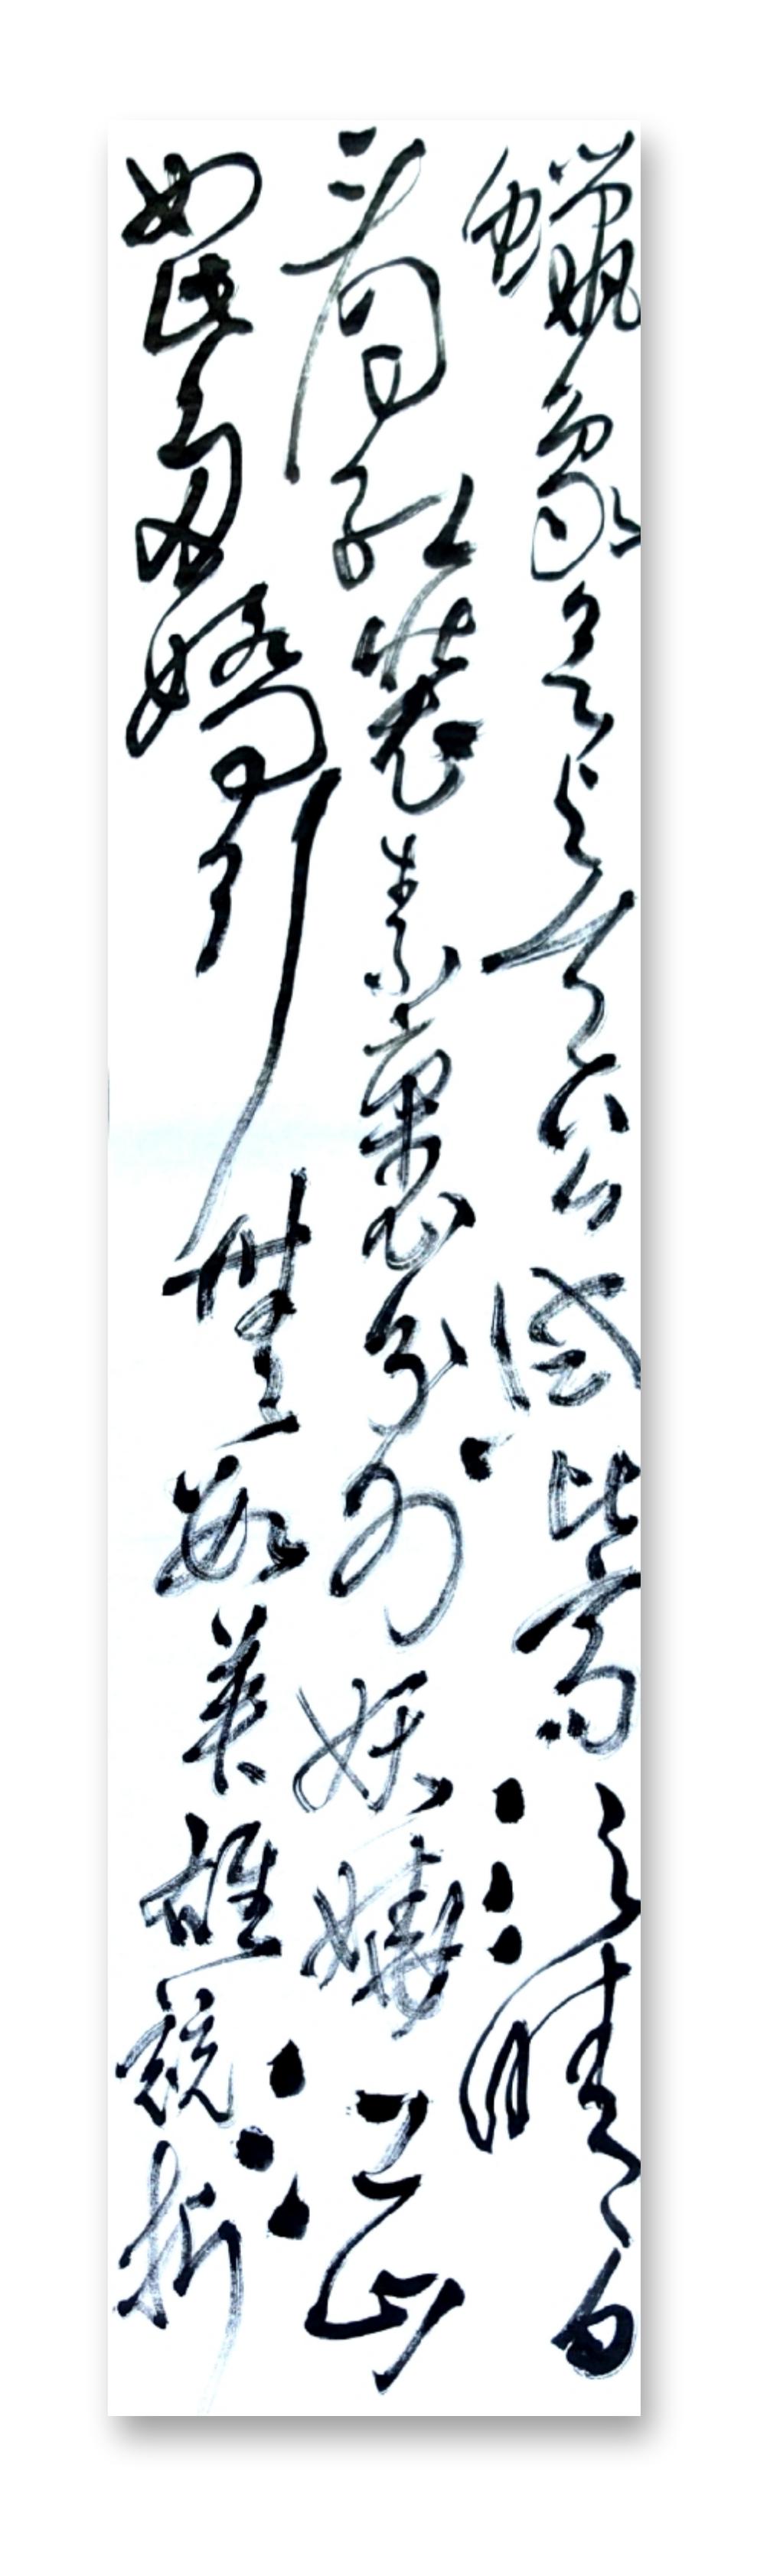 蠟象欲与天公試比高須晴日
看紅裝素裹分外妖嬈江山
如此多嬌引無數英雄競折